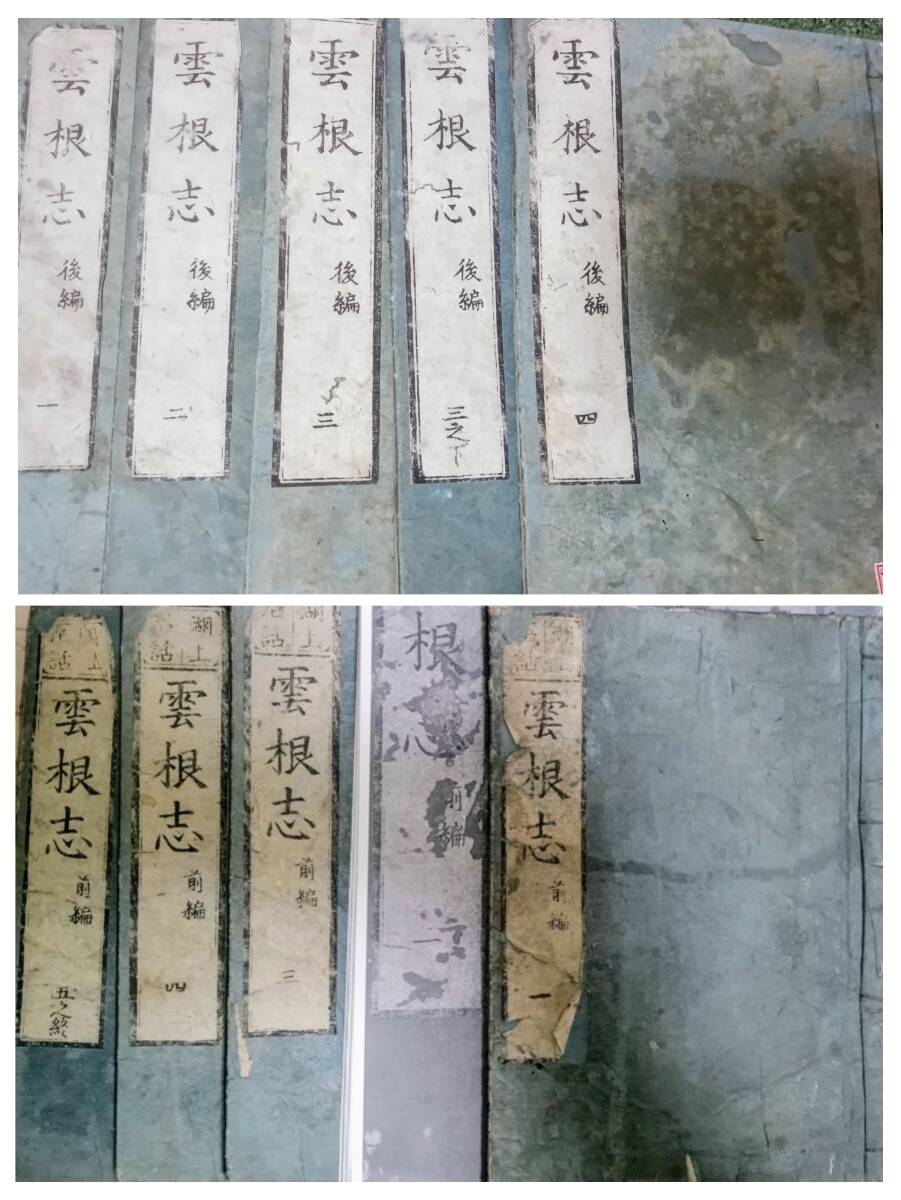 雲根志
後編
一
雲根志
後編
二
雲根志
後編
三
雲根志
後編
三之下
雲根志
後編
四
雲根志
前編
湖上
話
雲根志
前編
四
湖上
話
雲根志
前編
三
根
前編
雲根志
前編
一